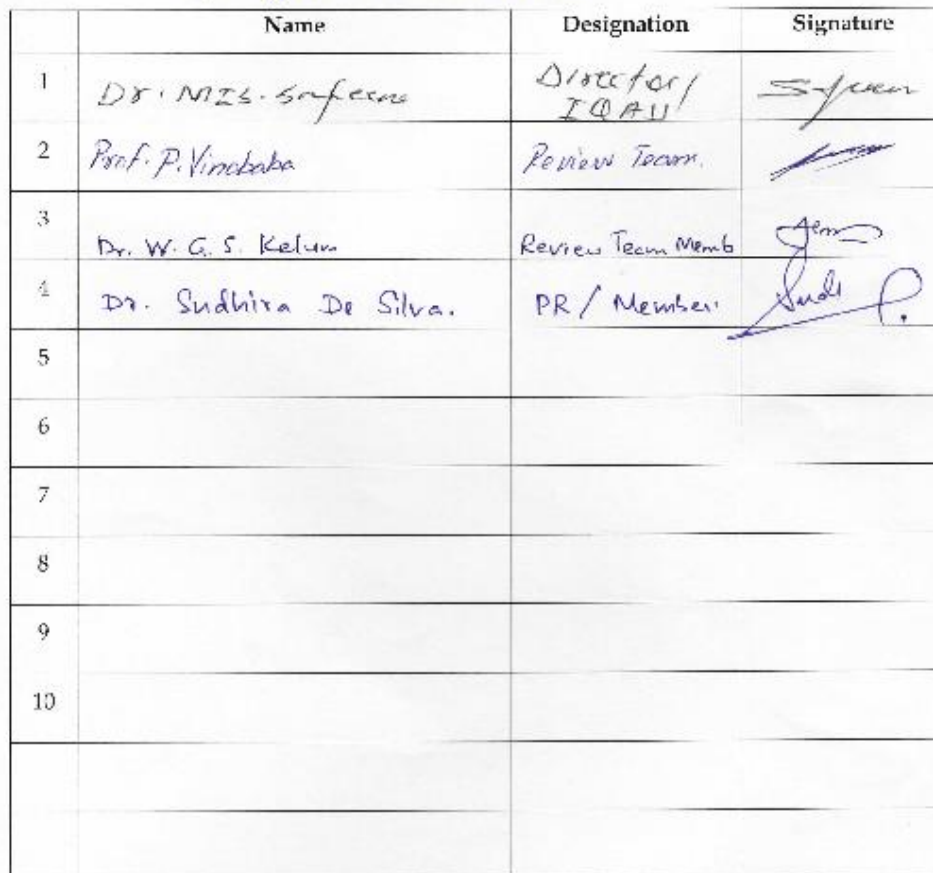 Name Designation Signature
1 Dr. MIS. Safeena Director/
IQAU
2 Prof. P. Vinobaba Review Team.
3 Dr. W. G. S. Kelum Review Team Memb
4 Dr. Sudhira De Silva. PR / Member
5
6
7
8
9
10